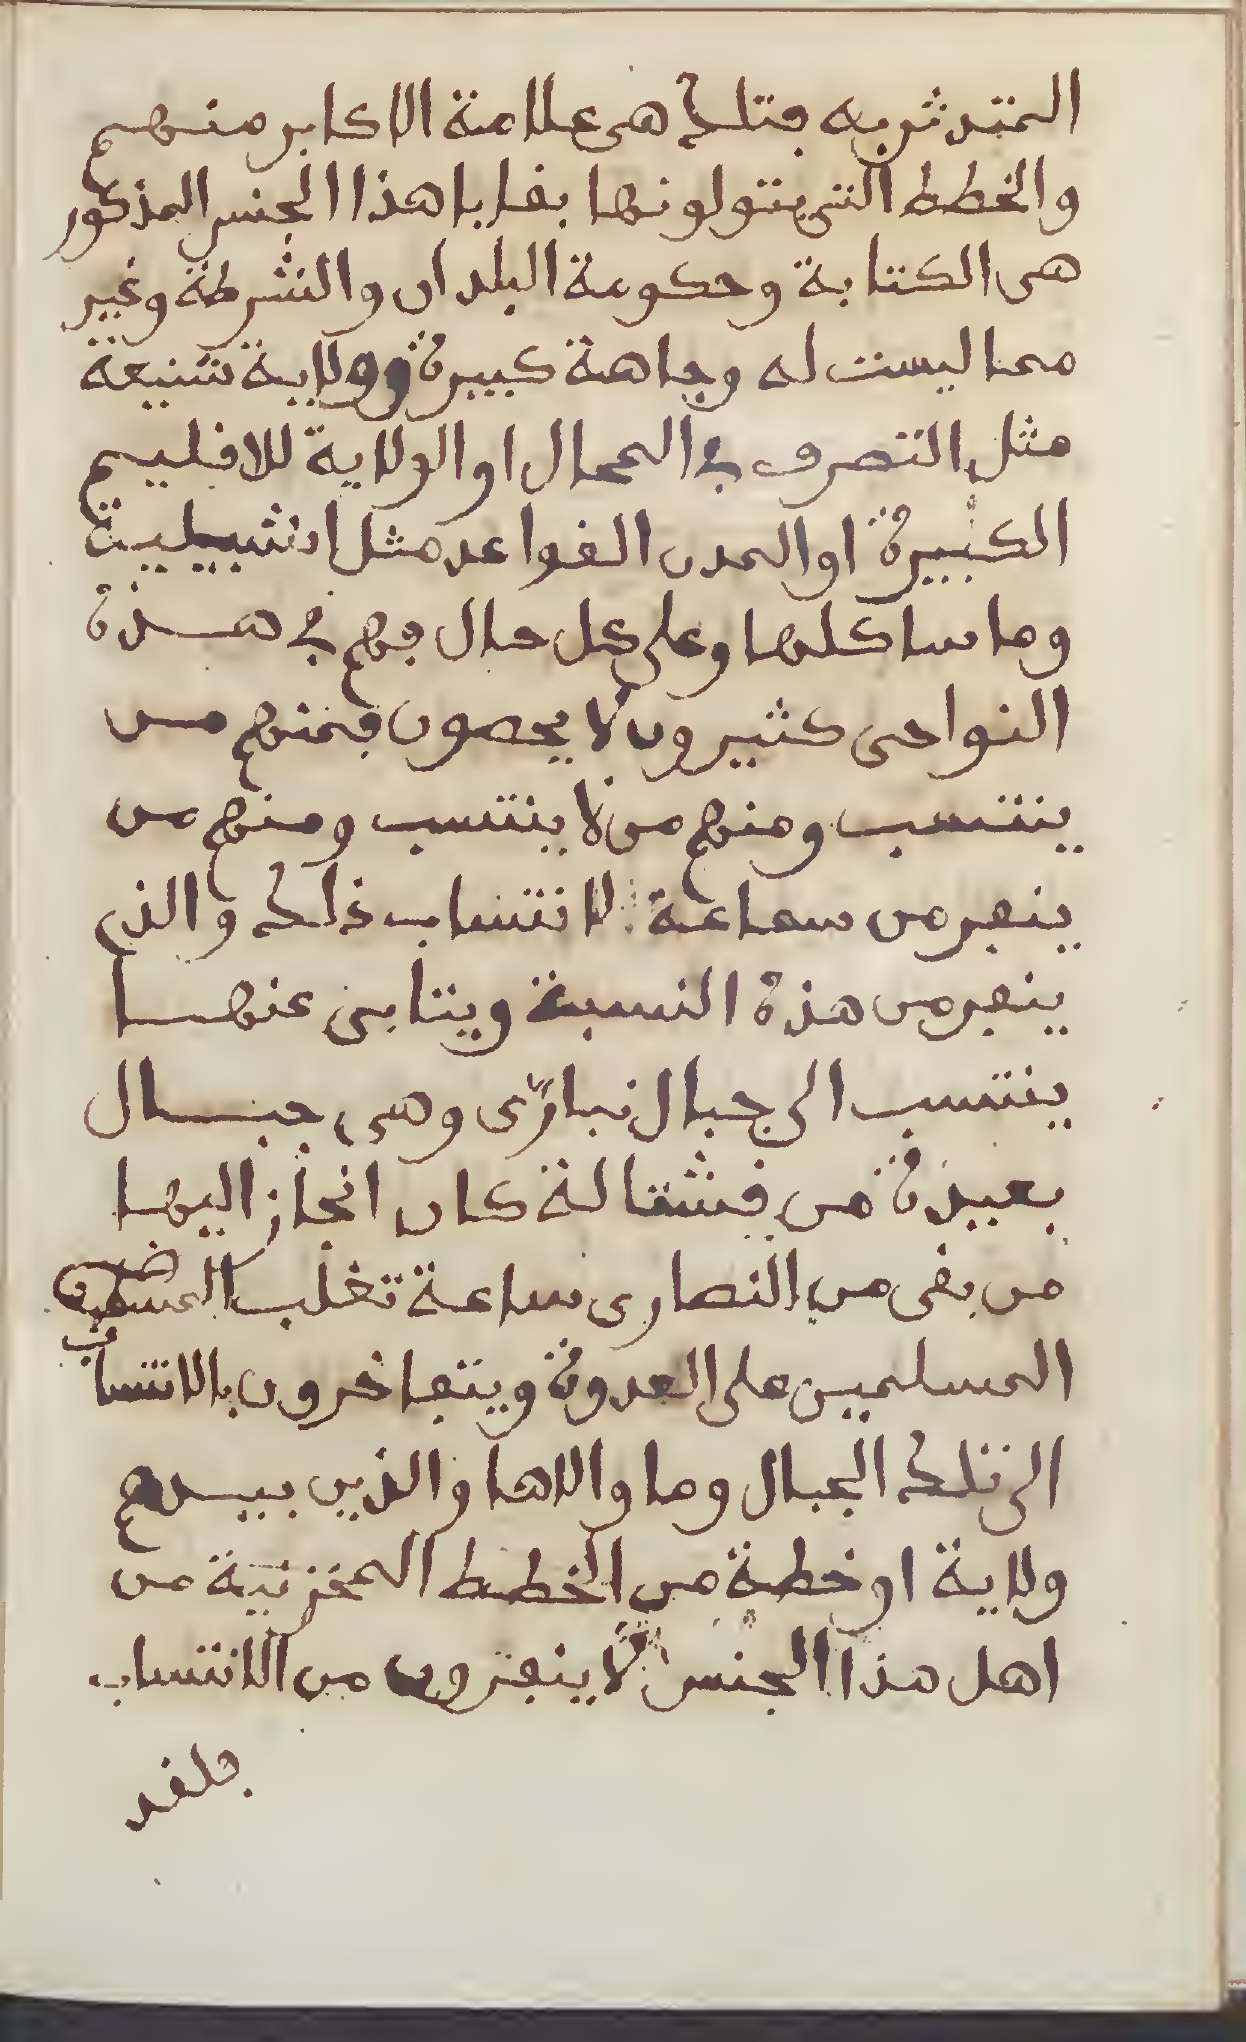 المتدثر به فتلك هي علامة الاكابر منهم
والخطط التي يتولونها بقايا هذا الجنس المذكور
هي الكتابة وحكومة البلدان والشرطة وغير
مما ليست له وجاهة كبيرة وولاية شنيعة
مثل التصرف في العمال او الولاية للاقليم
الكبيرة او المدن القواعد مثل اشبيلية
وما ساكلها وعلى كل حال فهم في هذه
النواحي كثيرون لا يحصون فمنهم من
ينتسب ومنهم من لا ينتسب ومنهم من
ينفر من سماعة لانتساب ذلك والذي
ينفر من هذه النسبة ويتابى عنها
ينتسب الى جبال نبارى وهي جبال
بعيدة من قشتالة كان انحاز اليها
من بقى من النصارى ساعة تغلب
المسلمين على العدوة ويتفاخرون بالانتساب
الى تلك الجبال وما والاها والذين بيدهم
ولاية او خطة من الخطط المخزنية من
اهل هذا الجنس لا ينفرون من الانتساب
فلقد